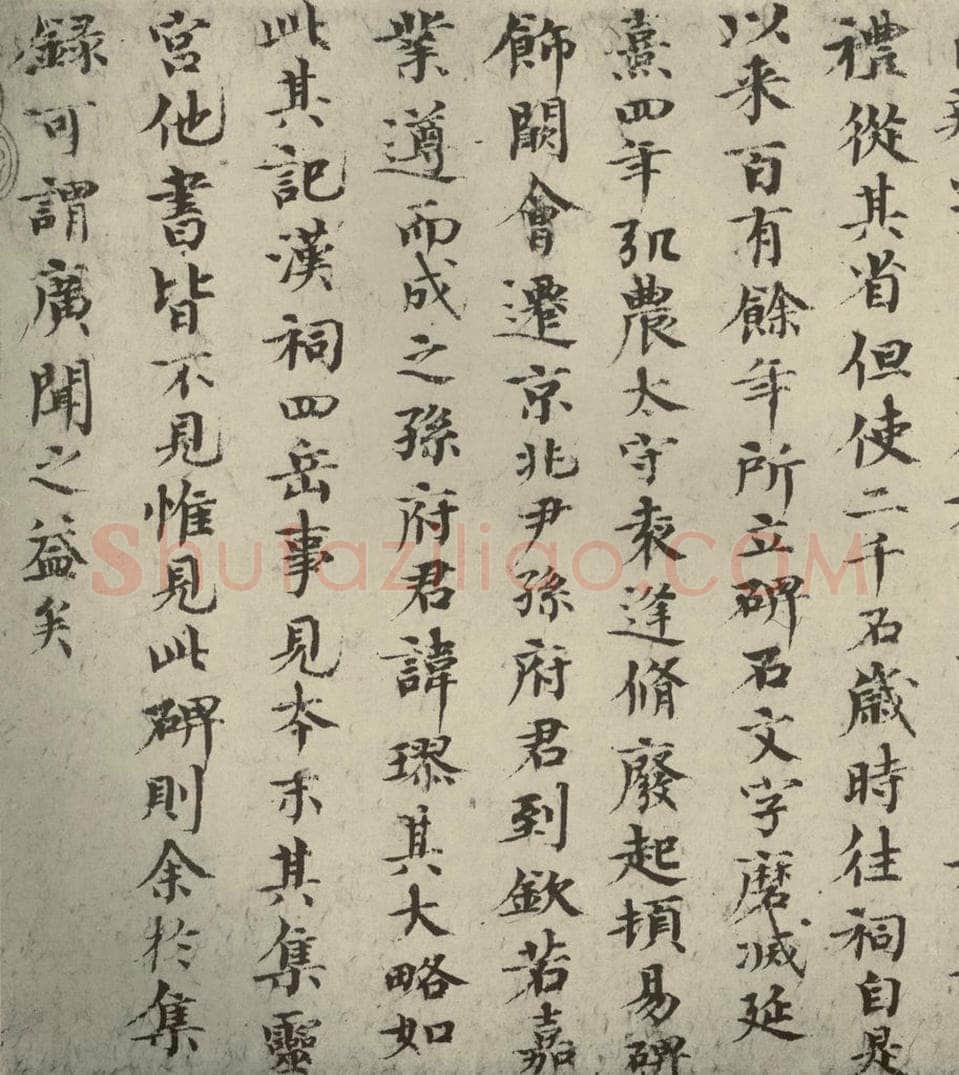 禮從其省但使二千石歲時往祠自是
以来百有餘年所立碑石文字磨滅延
熹四年弘農太守袁逢脩廢起頓易碑
飾闕會遷京兆尹孫府君到欽若嘉
業遵而成之孫府君諱璆其大略如
此其記漢祠四岳事見夲末其集靈
宮他書皆不見惟見此碑則余於集
録可謂廣聞之益矣
Shufaziliao.COM